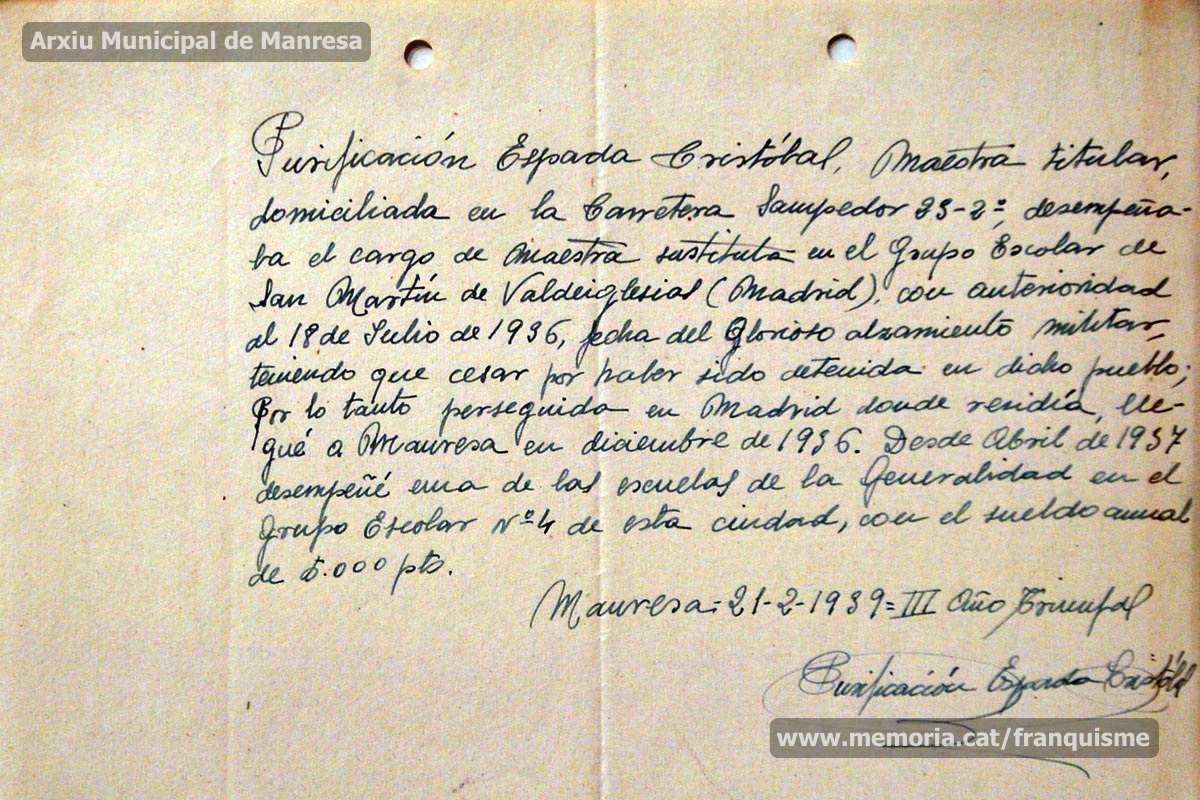 Arxiu Municipal de Manresa
Purificación Espada Cristóbal, Maestra titular,
domiciliada en la Carretera Sampedor 23-2º, desempeña-
ba el cargo de Maestra sustituta en el Grupo Escolar de
San Martín de Valdeiglesias (Madrid), con anterioridad
al 18 de Julio de 1936, fecha del Glorioso alzamiento militar,
teniendo que cesar por haber sido detenida en dicho pueblo;
Por lo tanto perseguida en Madrid donde residía, lle-
gué a Manresa en diciembre de 1936. Desde Abril de 1937
desempeñé una de las escuelas de la Generalidad en el
Grupo Escolar Nº 4 de esta ciudad, con el sueldo anual
de 5.000 pts.
Manresa = 21-2-1939 = III Año Triunfal
Purificación Espada Cristóbal
www.memoria.cat/franquisme